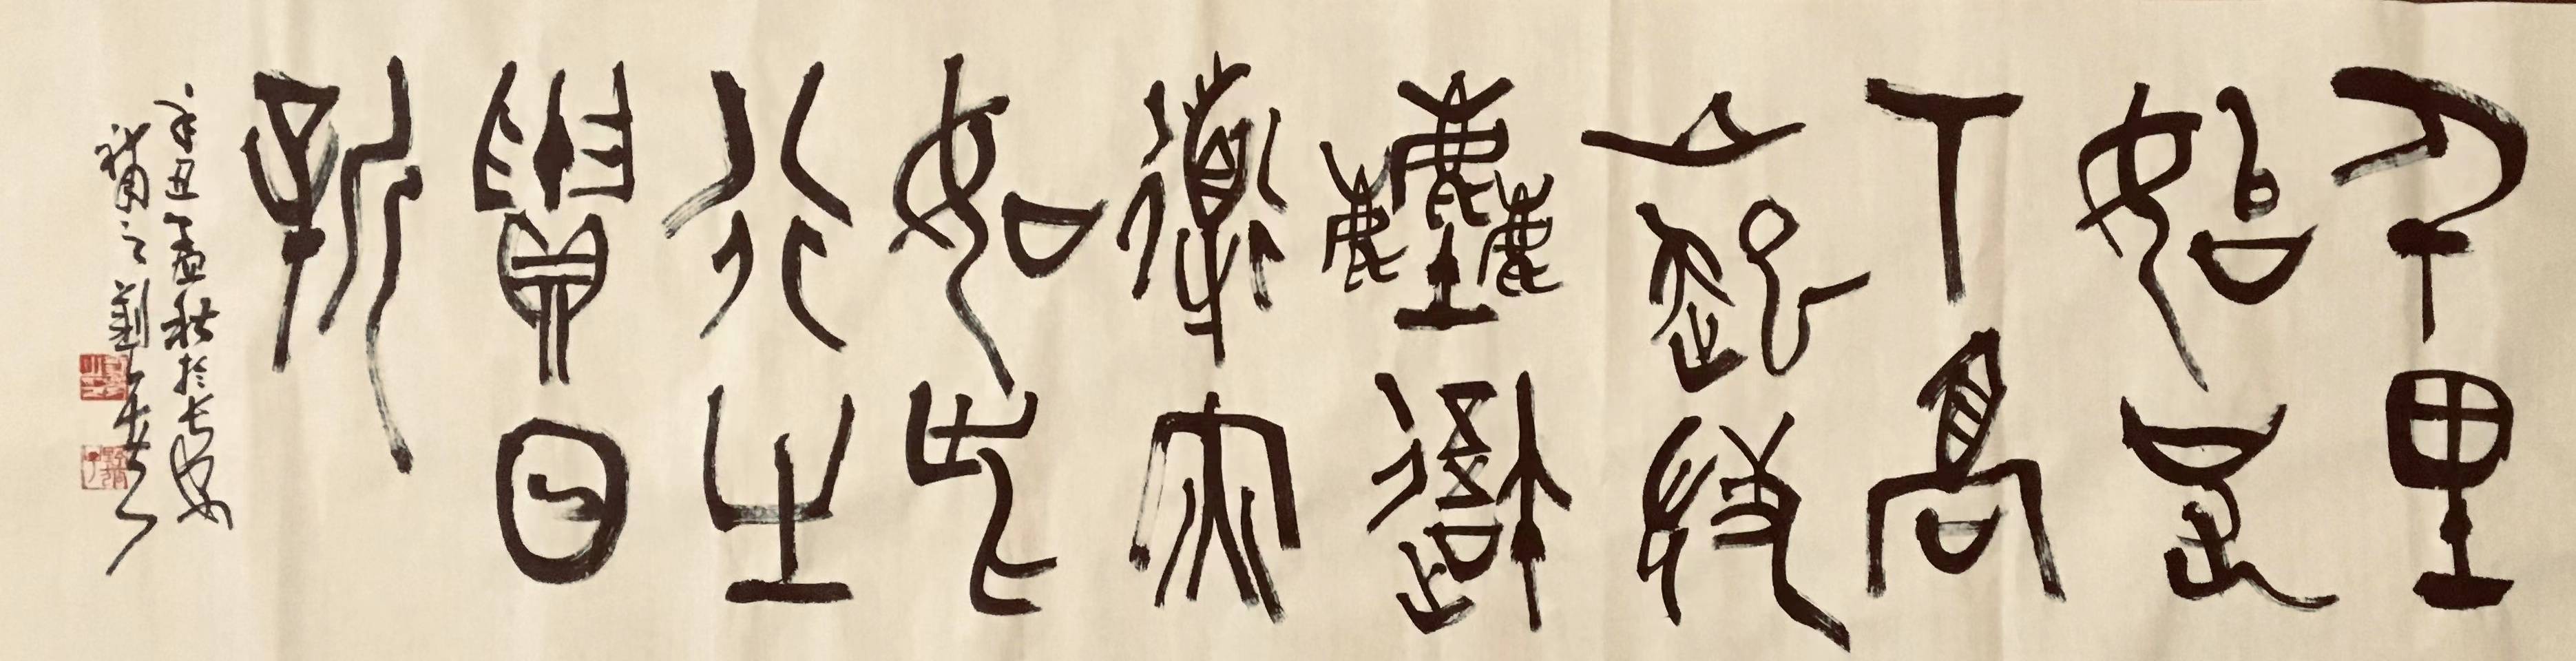 千里
始足
下高
山起微
塵吾
道亦
如此
行之
貴日
新
辛丑孟秋於長安
之劉